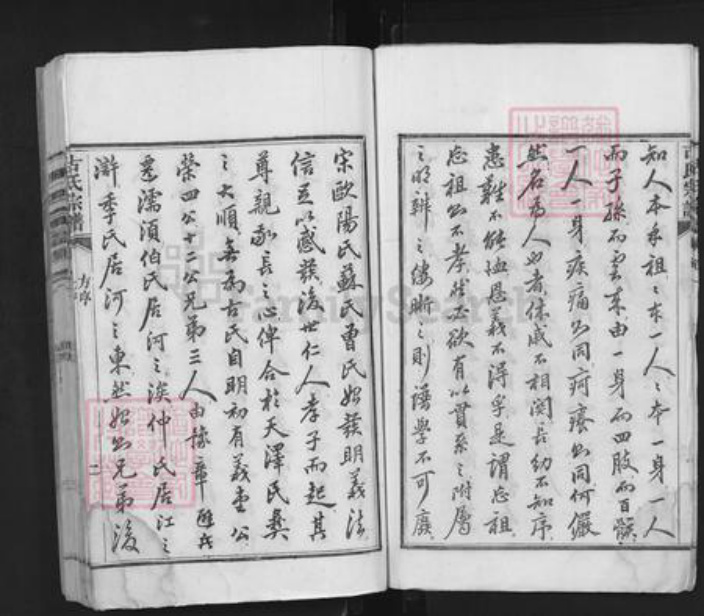 知人本乎祖祖本一人一人之本一身一人
而子孫而雲來由一身而四肢而百骸
一人一身疾痛必同疴癢必同何儼
然名為人也者休戚不相関長幼不知序
患難不能恤恩義不得孚是謂忘祖
忘祖必不孝
欲有以貫系之附屬
之明辨之縷晰之則譜學不可廢
宋歐陽氏蘇氏曹氏始發明義法
信足以感發後世仁人孝子而起其
尊親敬長之心俾合於天澤民彝
之大順吾為古氏自明初有義重公
榮四公十二公兄弟三人由豫章避兵
遷濡須伯氏居河之涘仲氏居江之
滸季氏居河之東然始必兄弟後
古氏宗譜
方序
二
FamilySearch